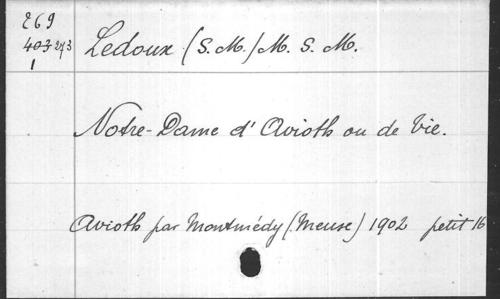 269
403 273 Ledoux (S. M.) M. S. M.
1
Notre-Dame d' Avioth ou de Vie.
Avioth par Montmédy (Meuse) 1902 petit 16